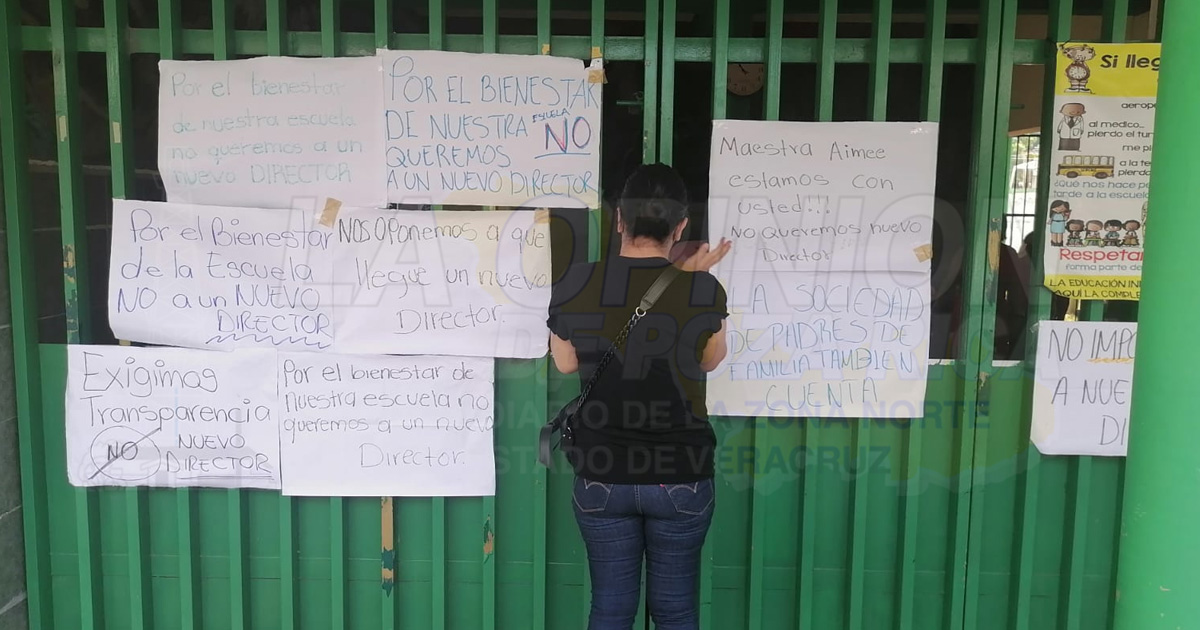 Por el bienestar
de nuestra escuela
no queremos a un
nuevo DIRECTOR
POR EL BIENESTAR
DE NUESTRA ESCUELA NO
QUEREMOS
A UN NUEVO DIRECTOR
Por el Bienestar
de la Escuela
NO a un NUEVO
DIRECTOR
NOS OPonemos a que
llegue un nuevo
Director.
Exigimos
Transparencia
NO NUEVO
DIRECTOR
Por el bienestar de
nuestra escuela no
queremos a un nuevo
Director.
Maestra Aimee
estamos con
usted!!!
No Queremos nuevo
Director
LA SOCIEDAD
DE PADRES DE
FAMILIA TAMBIEN
CUENTA
Si lleg
aerope
al medico...
pierdo el tur
me pi
a la te
pierdo
¿Qué nos hace pe
tarde a la escuela
Respetar
forma parte de
LA EDUCACIÓN INI
AQUÍ LA COMPLE
NO IMPO
A NUE
DI
LA OPINION
DE POZA RICA
DIARIO DE LA ZONA NORTE
ESTADO DE VERACRUZ